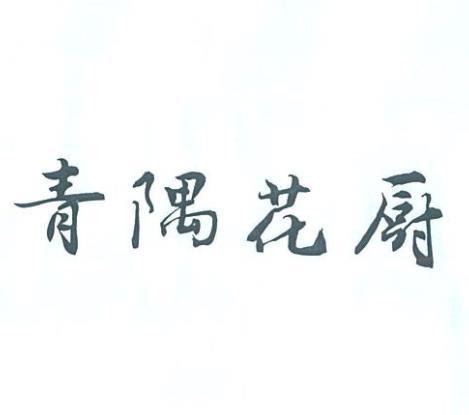 青隅花厨